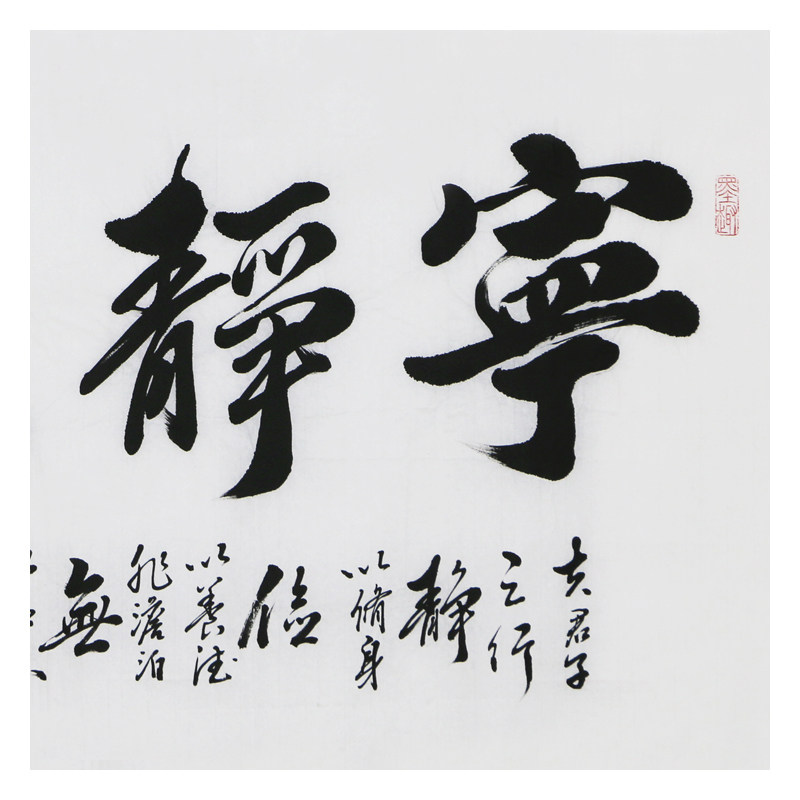 寧靜
夫君子
之行
靜
以脩身
儉
以養德
非澹泊
無